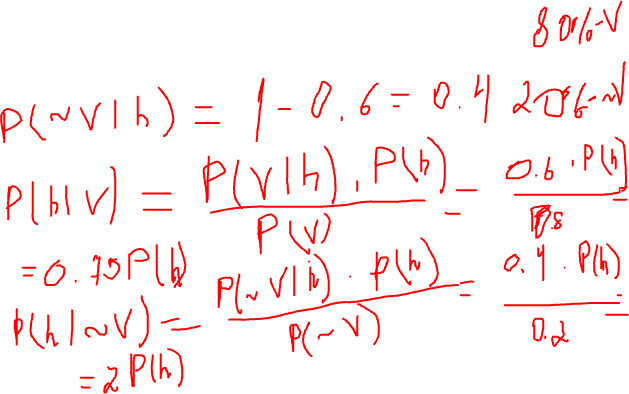 80%-V
P(~V|h) = 1 - 0.6 = 0.4 20%-~V
P(h|V) = P(V|h) . P(h) / P(V) = 0.6 . P(h) / 0.8 =
= 0.75 P(h)
P(h|~V) = P(~V|h) . P(h) / P(~V) = 0.4 . P(h) / 0.2 =
= 2 P(h)